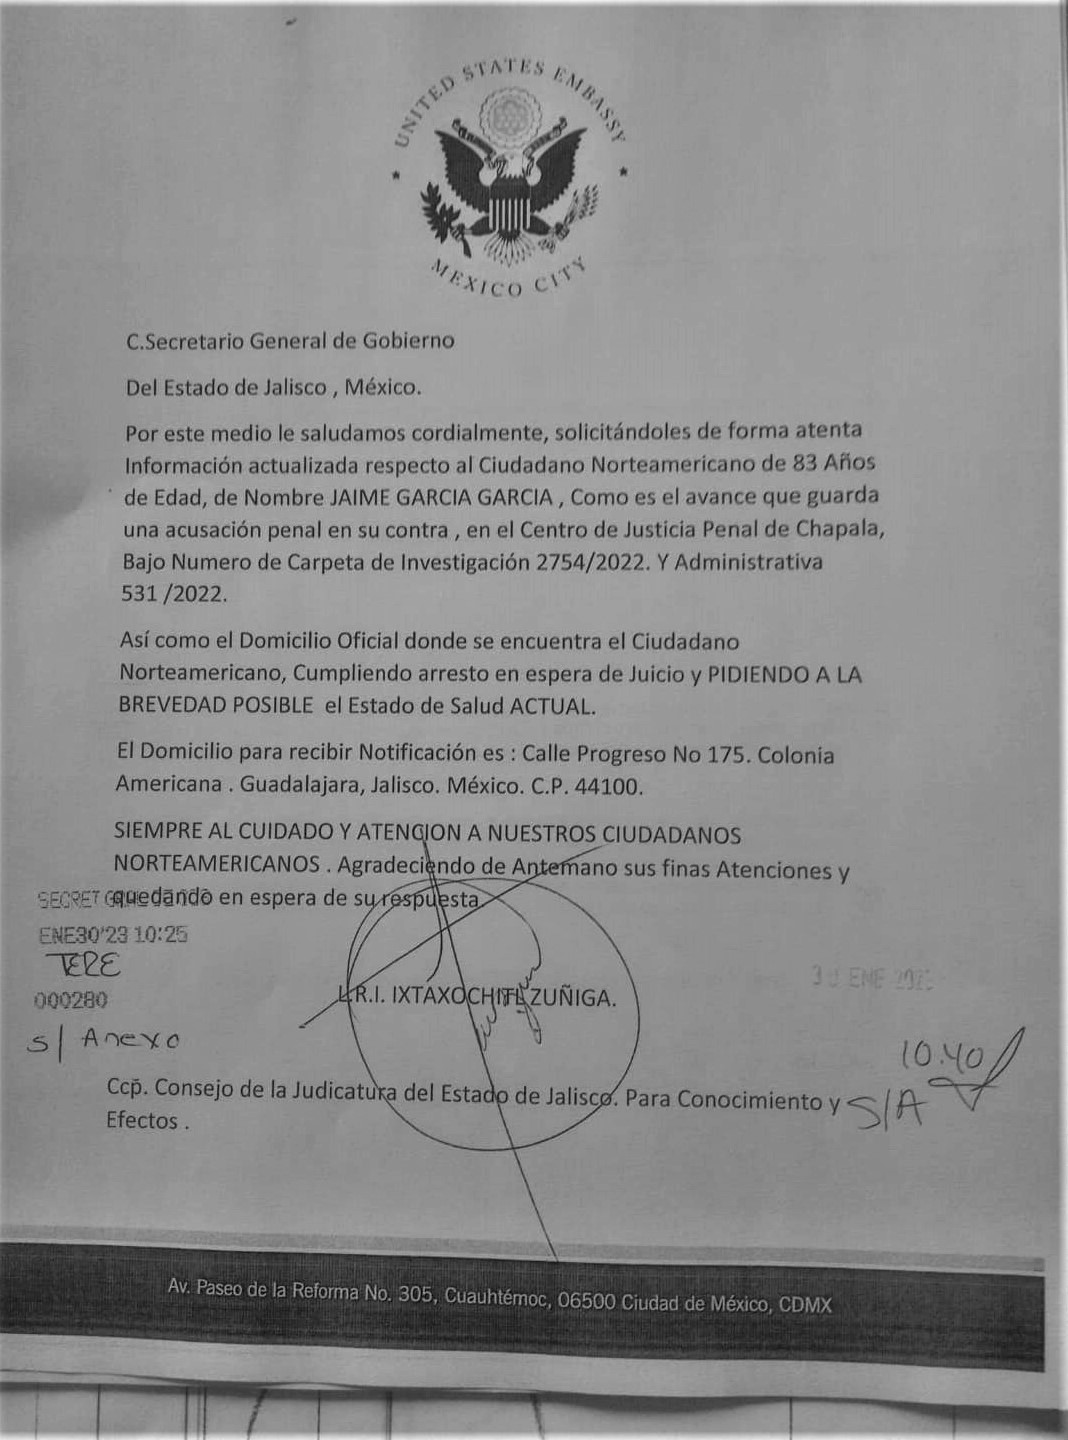 UNITED STATES EMBASSY
MEXICO CITY
C.Secretario General de Gobierno
Del Estado de Jalisco , México.
Por este medio le saludamos cordialmente, solicitándoles de forma atenta
Información actualizada respecto al Ciudadano Norteamericano de 83 Años
de Edad, de Nombre JAIME GARCIA GARCIA , Como es el avance que guarda
una acusación penal en su contra , en el Centro de Justicia Penal de Chapala,
Bajo Numero de Carpeta de Investigación 2754/2022. Y Administrativa
531 /2022.
Así como el Domicilio Oficial donde se encuentra el Ciudadano
Norteamericano, Cumpliendo arresto en espera de Juicio y PIDIENDO A LA
BREVEDAD POSIBLE el Estado de Salud ACTUAL.
El Domicilio para recibir Notificación es : Calle Progreso No 175. Colonia
Americana . Guadalajara, Jalisco. México. C.P. 44100.
SIEMPRE AL CUIDADO Y ATENCION A NUESTROS CIUDADANOS
NORTEAMERICANOS . Agradeciendo de Antemano sus finas Atenciones y
quedando en espera de su respuesta.
SECRET GRAL
ENE30'23 10:25
TERE
000280
S/ Anexo
L.R.I. IXTAXOCHITL ZUÑIGA.
30 ENE 2023
10:40
S/A
Ccp. Consejo de la Judicatura del Estado de Jalisco. Para Conocimiento y
Efectos .
Av. Paseo de la Reforma No. 305, Cuauhtémoc, 06500 Ciudad de México, CDMX